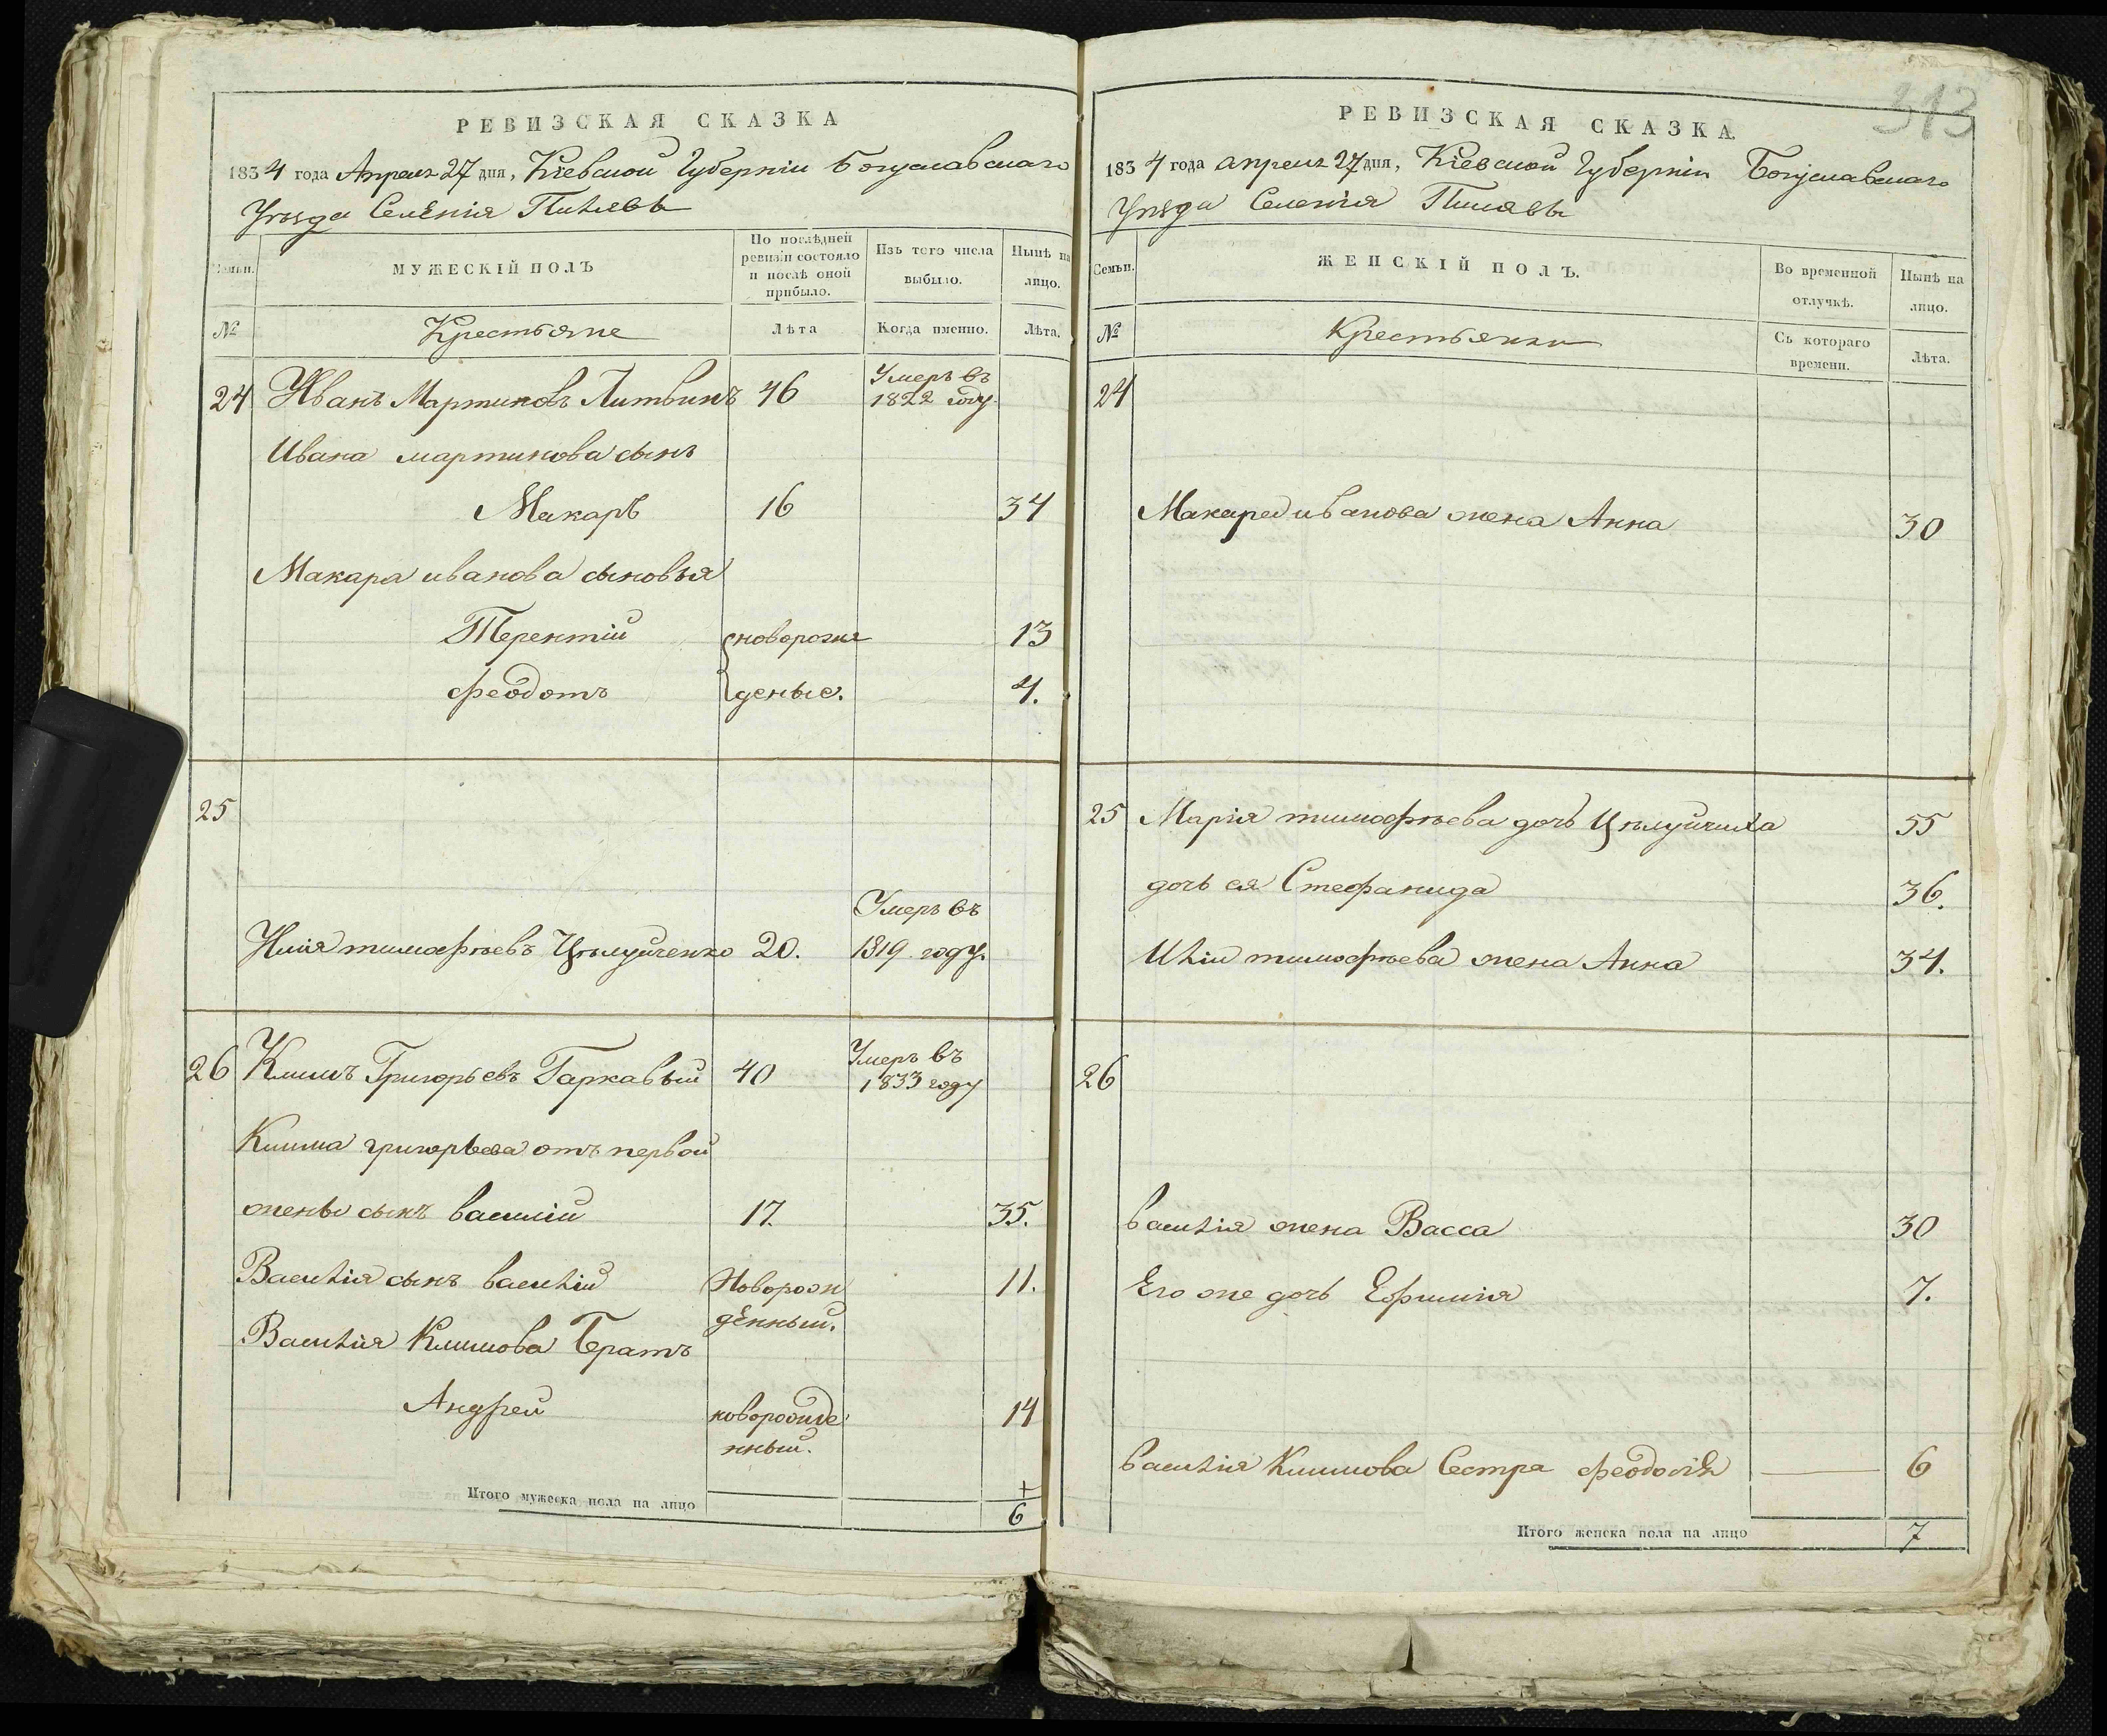 РЕВИЗСКАЯ СКАЗКА
1834 года Апреля 27 дня, Кіевской Губерніи Богуславскаго
Уѣзда Селенія Пилявы
Семьи.
МУЖЕСКІЙ ПОЛЪ
По послѣдней ревизіи состояло и послѣ оной прибыло.
Изъ того числа выбыло.
Нынѣ на лицо.
№
Крестьяне
Лѣта
Когда именно.
Лѣта.
24 Иванъ Мартиновъ Литвинъ 46 Умеръ въ 1822 году.
Ивана мартинова сынъ
Макаръ 16 34
Макара иванова сыновья
Терентій новорож 13
Феодотъ деные. 4.
25
Илія тимофѣевъ Цѣлуйченко 20. Умеръ въ 1819 году.
26 Климъ Григорьевъ Гаркавый 40 Умеръ въ 1833 году
Клима григорьева отъ первой
жены сынъ василій 17. 35.
Василія сынъ василій Наворож 11.
дённый.
Василія Климова Братъ
Андрей новорожде 14
нный.
Итого мужеска пола на лицо 6
313
РЕВИЗСКАЯ СКАЗКА
1834 года апреля 27 дня, Кіевской Губерніи Богуславскаго
Уѣзда Селенія Пилявы
Семьи.
ЖЕНСКІЙ ПОЛЪ.
Во временной отлучкѣ.
Нынѣ на лицо.
№
Крестьянки
Съ котораго времени.
Лѣта.
24
Макара иванова жена Анна 30
25 Марія тимофѣева дочь Цѣлуйчиха 55
дочь ея Стефанида 36.
Иліи тимофѣева жена Анна 34.
26
василія жена Васса 30
Его же дочь Ефимія 7.
василія Климова Сестра феодосія 6
Итого женска пола на лицо 7